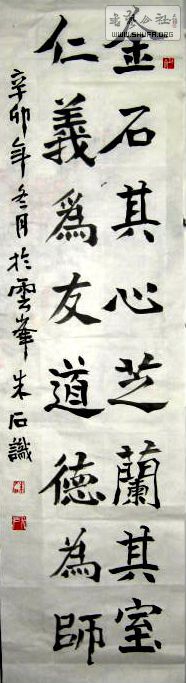 金石其心芝蘭其室
仁義為友道德為師
辛卯年冬月於雲峯朱石識
WWW.SHUFA.ORG